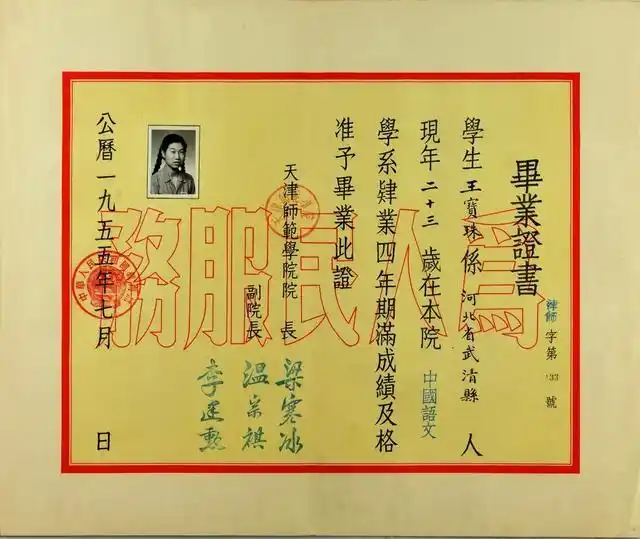 畢業證書
津師字第133號
學生王寶珠係河北省武清縣人
現年二十三歲在本院中國語文
學系肄業四年期滿成績及格
准予畢業此證
天津師範學院院長
副院長
梁寒冰
溫宗祺
李建勲
公曆一九五五年七月 日
為人民服務